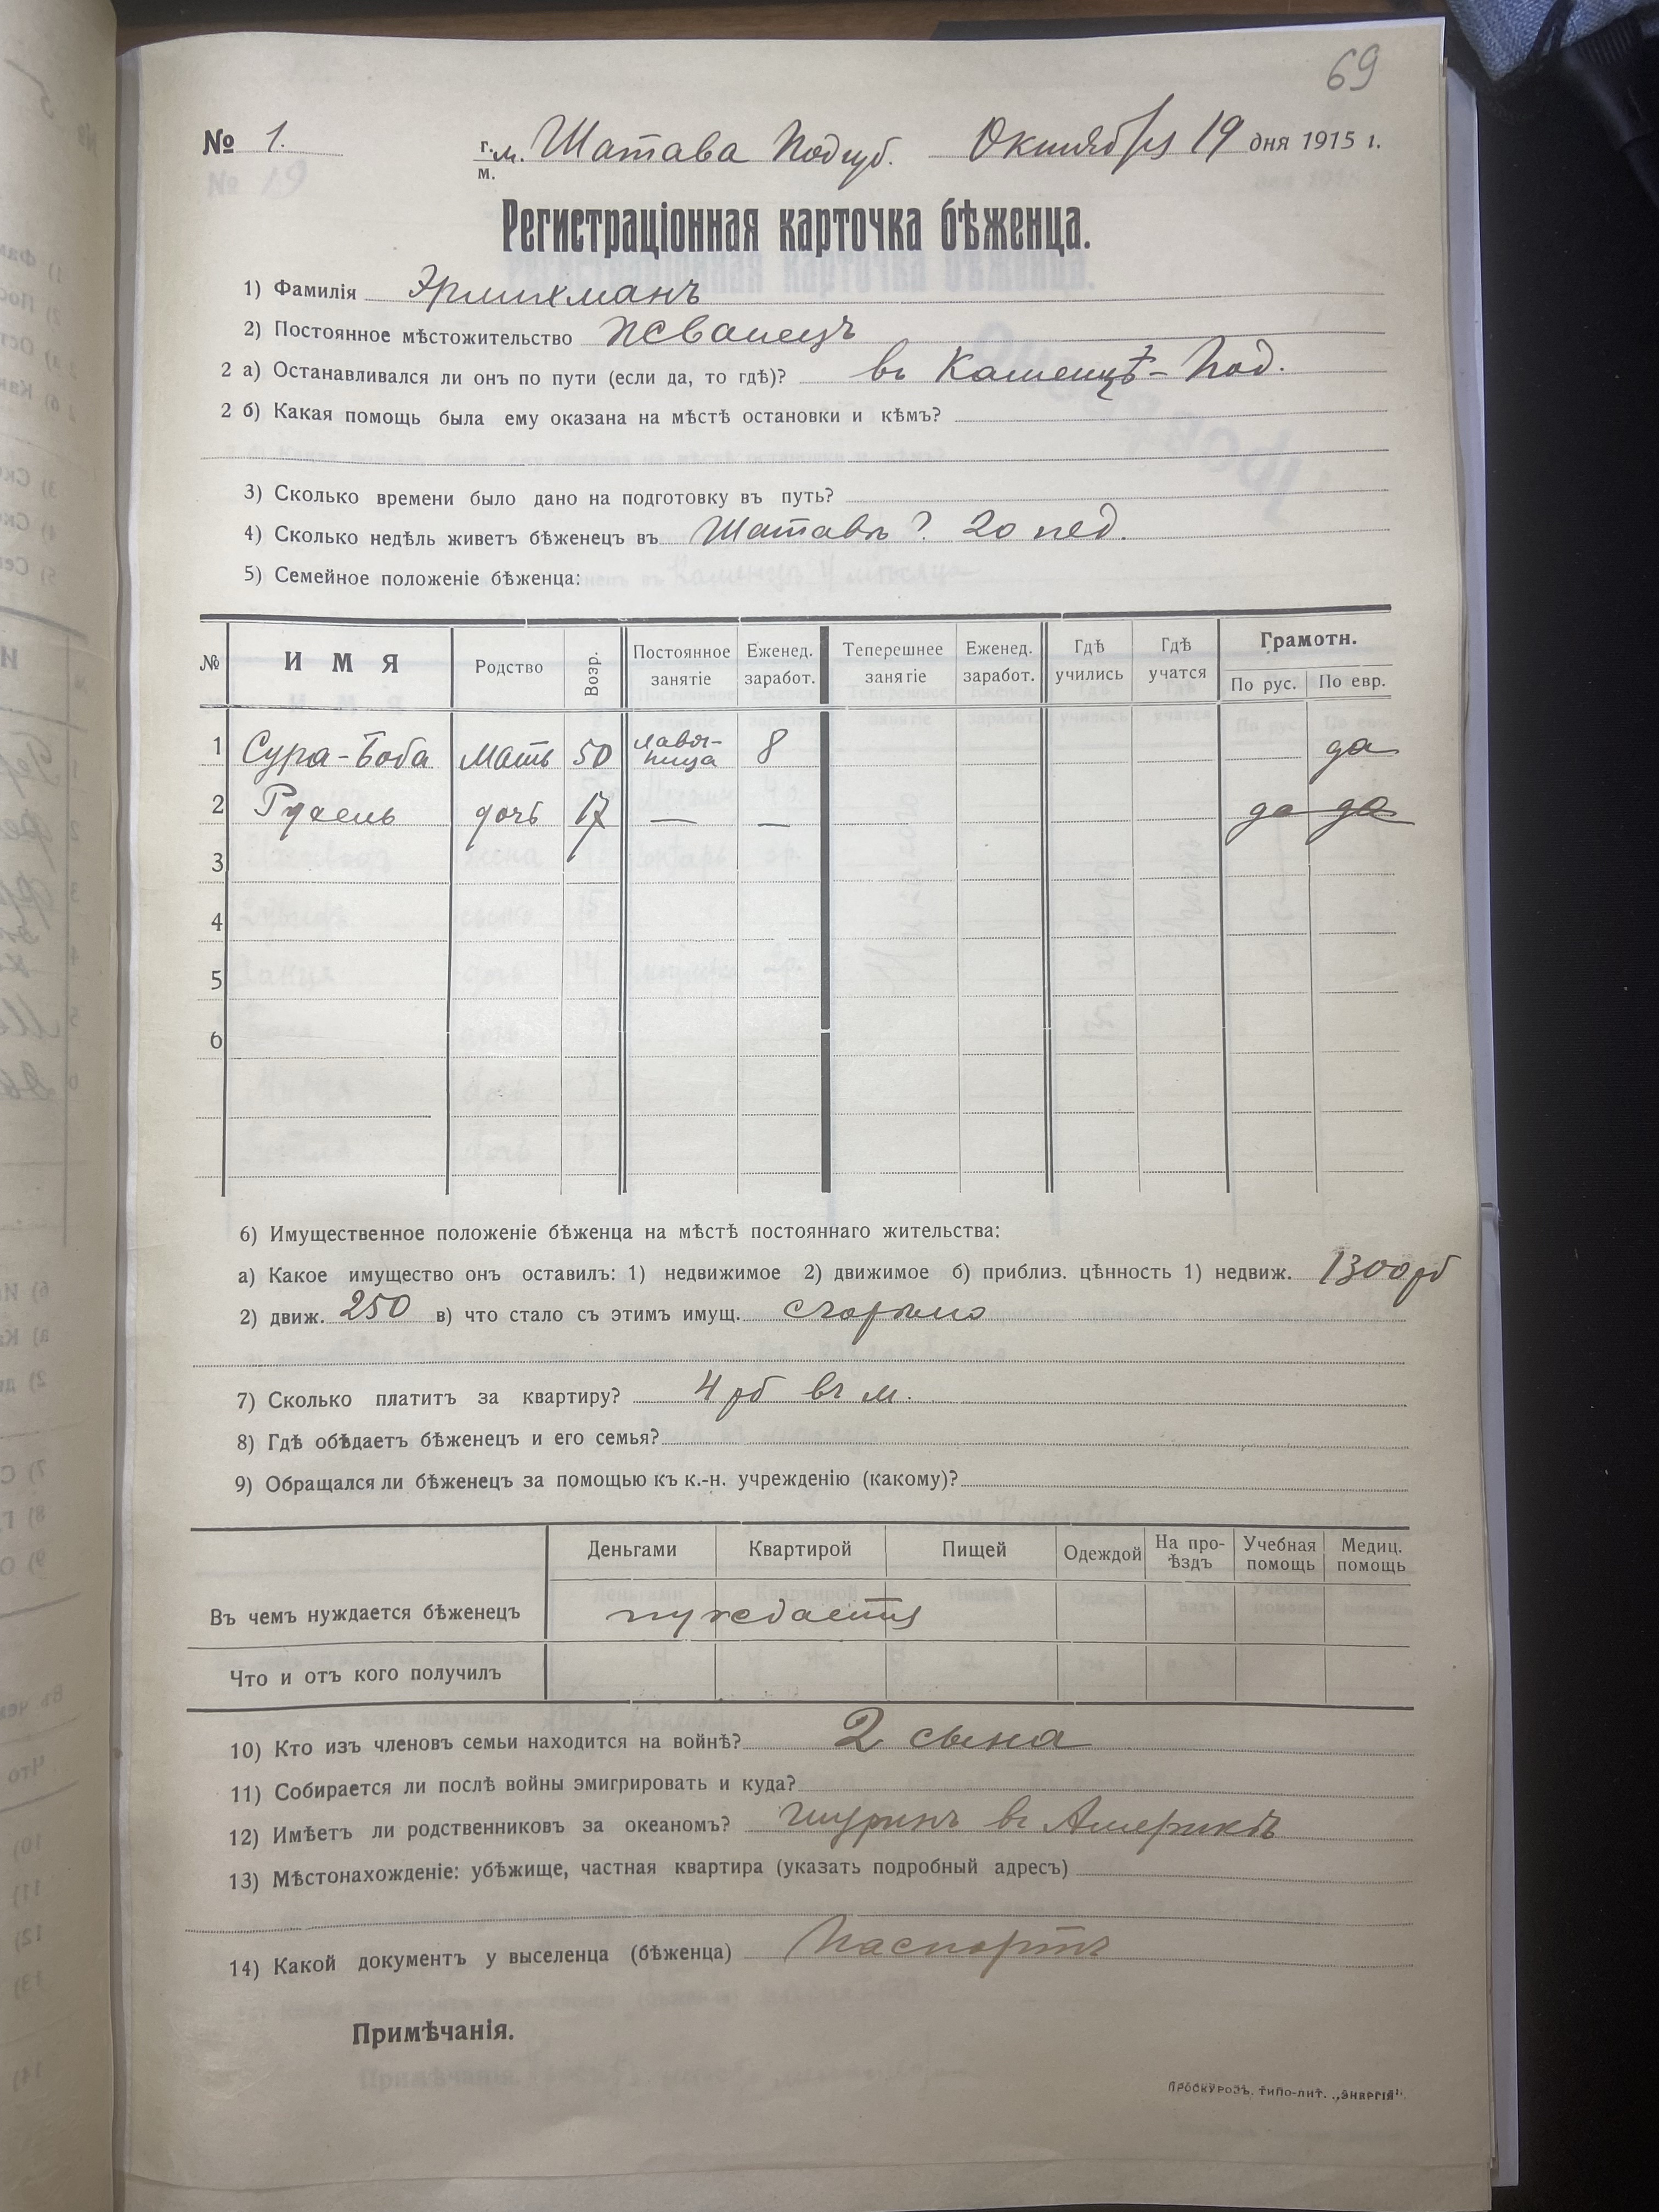 69
№ 1.
г. м. Шатава Подгуб. Октября 19 дня 1915 г.
м.
Регистраціонная карточка бѣженца.
1) Фамилія Эрлихманъ
2) Постоянное мѣстожительство Жванецъ
2 а) Останавливался ли онъ по пути (если да, то гдѣ)? въ Каменцѣ-Под.
2 б) Какая помощь была ему оказана на мѣстѣ остановки и кѣмъ?
3) Сколько времени было дано на подготовку въ путь?
4) Сколько недѣль живетъ бѣженецъ въ Шатавѣ? 20 нед.
5) Семейное положеніе бѣженца:
№ ИМЯ Родство Возр. Постоянное занятіе Еженед. заработ. Теперешнее занятіе Еженед. заработ. Гдѣ учились Гдѣ учатся Грамотн. По рус. По евр.
1 Сура-Боба мать 50 лавоч-ница 8 да
2 Рухень дочь 17 — — да да
3
4
5
6
6) Имущественное положеніе бѣженца на мѣстѣ постояннаго жительства:
а) Какое имущество онъ оставилъ: 1) недвижимое 2) движимое б) приблиз. цѣнность 1) недвиж. 1300 рб
2) движ. 250 в) что стало съ этимъ имущ. сгорѣло
7) Сколько платитъ за квартиру? 4 рб въ м.
8) Гдѣ обѣдаетъ бѣженецъ и его семья?
9) Обращался ли бѣженецъ за помощью къ к.-н. учрежденію (какому)?
Деньгами Квартирой Пищей Одеждой На про-ѣздъ Учебная помощь Медиц. помощь
Въ чемъ нуждается бѣженецъ нуждается
Что и отъ кого получилъ
10) Кто изъ членовъ семьи находится на войнѣ? 2 сына
11) Собирается ли послѣ войны эмигрировать и куда?
12) Имѣетъ ли родственниковъ за океаномъ? шуринъ въ Америкѣ
13) Мѣстонахожденіе: убѣжище, частная квартира (указать подробный адресъ)
14) Какой документъ у выселенца (бѣженца) Паспортъ
Примѣчанія.
Проскуровъ. Типо-лит. „Энергія".